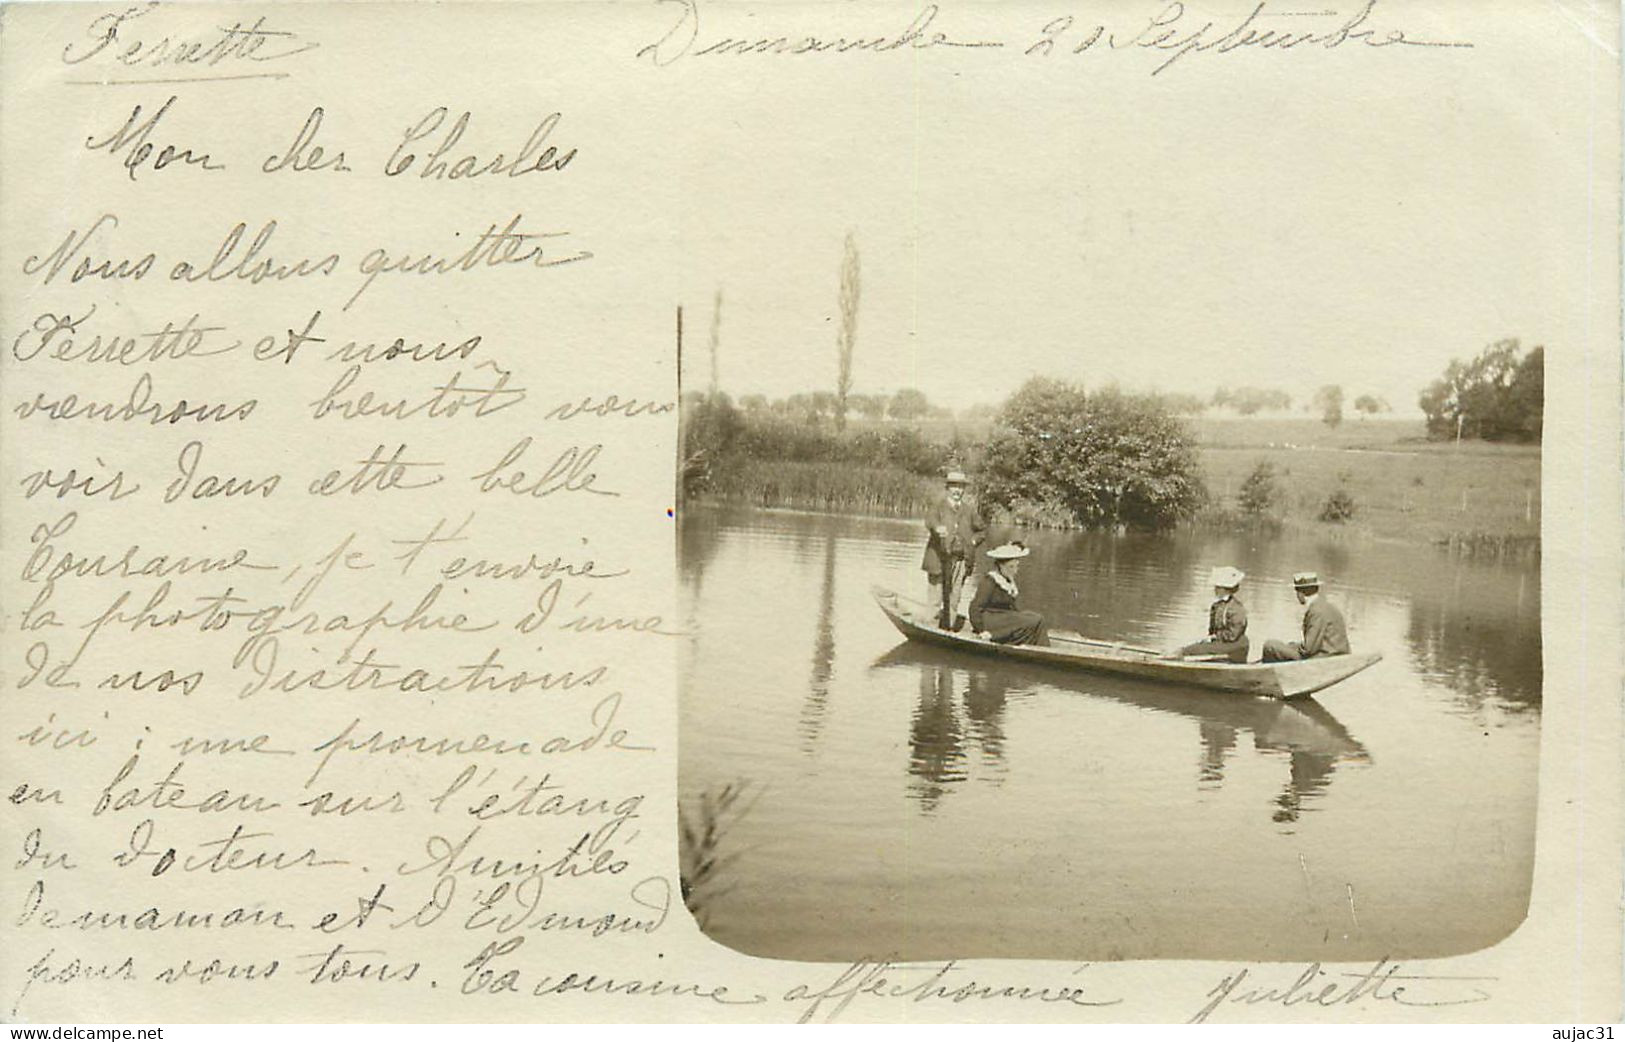 Ferrette
Dimanche 20 Septembre
Mon cher Charles
Nous allons quitter
Ferrette et nous
viendrons bientôt vous
voir dans cette belle
Touraine, je t'envoie
la photographie d'une
de nos distractions
ici : une promenade
en bateau sur l'étang
du docteur. Amitiés
de maman et d'Edmond
pour vous tous. Ta cousine affectionnée Juliette
www.delcampe.net
aujac31